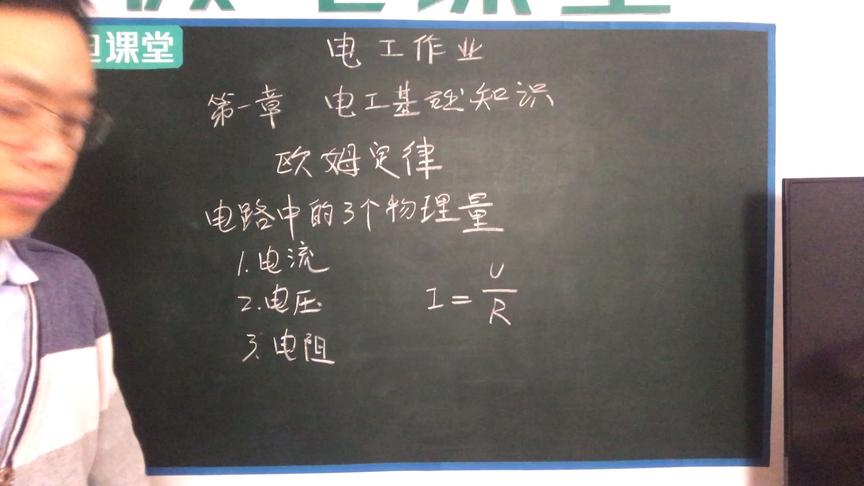 课堂
电工作业
第一章 电工基础知识
欧姆定律
电路中的3个物理量
1.电流
2.电压
3.电阻
I=U/R